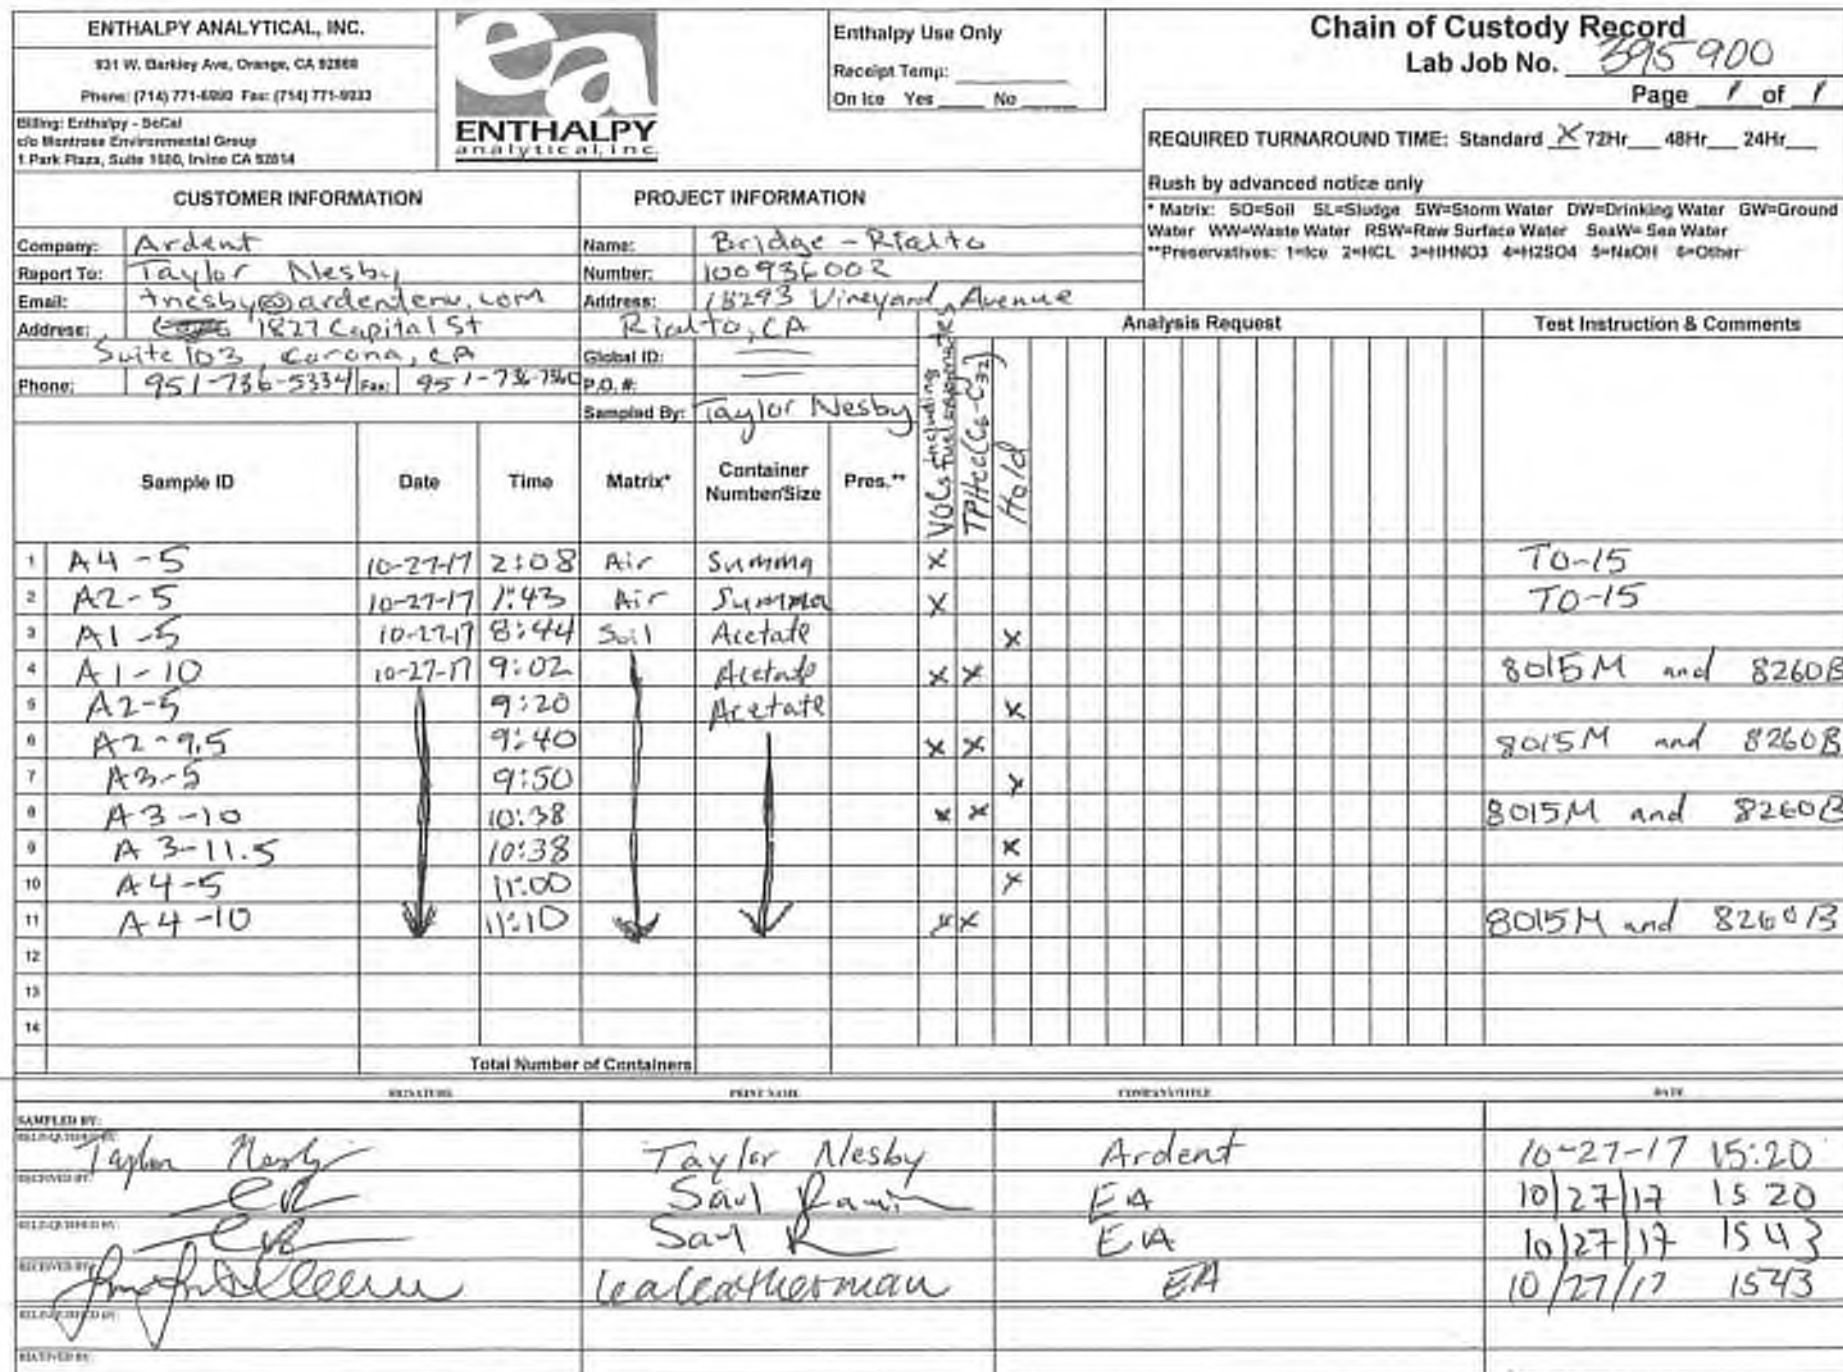 ENTHALPY ANALYTICAL, INC.
931 W. Barkley Ave, Orange, CA 92868
Phone: (714) 771-6900 Fax: (714) 771-9933
Billing: Enthalpy - SoCal
c/o Montrose Environmental Group
1 Park Plaza, Suite 1000, Irvine CA 92614
ea
ENTHALPY
analytical, inc.
Enthalpy Use Only
Receipt Temp:
On Ice Yes No
Chain of Custody Record
Lab Job No. 395900
Page 1 of 1
REQUIRED TURNAROUND TIME: Standard X 72Hr 48Hr 24Hr
Rush by advanced notice only
* Matrix: SO=Soil SL=Sludge SW=Storm Water DW=Drinking Water GW=Ground
Water WW=Waste Water RSW=Raw Surface Water SeaW= Sea Water
**Preservatives: 1=Ice 2=HCL 3=HHNO3 4=H2SO4 5=NaOH 6=Other
CUSTOMER INFORMATION
Company: Ardent
Report To: Taylor Nesby
Email: tnesby@ardentenv.com
Address: 1827 Capital St
Suite 103, Corona, CA
Phone: 951-736-5334 Fax: 951-736-7560
PROJECT INFORMATION
Name: Bridge - Rialto
Number: 100936002
Address: 18293 Vineyard Avenue
Rialto, CA
Global ID: —
P.O. #: —
Sampled By: Taylor Nesby
Analysis Request
Test Instruction & Comments
VOCs including fuel oxygenates
TPHcc (C6-C32)
Hold
Sample ID Date Time Matrix* Container Number/Size Pres.**
1 A4-5 10-27-17 2:08 Air Summa X TO-15
2 A2-5 10-27-17 1:43 Air Summa X TO-15
3 A1-5 10-27-17 8:44 Soil Acetate X
4 A1-10 10-27-17 9:02 Acetate X X 8015M and 8260B
5 A2-5 9:20 Acetate X
6 A2-9.5 9:40 X X 8015M and 8260B
7 A3-5 9:50 X
8 A3-10 10:38 X X 8015M and 8260B
9 A3-11.5 10:38 X
10 A4-5 11:00 X
11 A4-10 11:10 X X 8015M and 8260B
12
13
14
Total Number of Containers
SIGNATURE PRINT NAME COMPANY/TITLE DATE
SAMPLED BY:
RELINQUISHED BY: Taylor Nesby Taylor Nesby Ardent 10-27-17 15:20
RECEIVED BY: Saul EA 10/27/17 1520
RELINQUISHED BY: Saul R EA 10/27/17 1543
RECEIVED BY: Lea Leatherman EA 10/27/17 1543
RELINQUISHED BY:
RECEIVED BY: